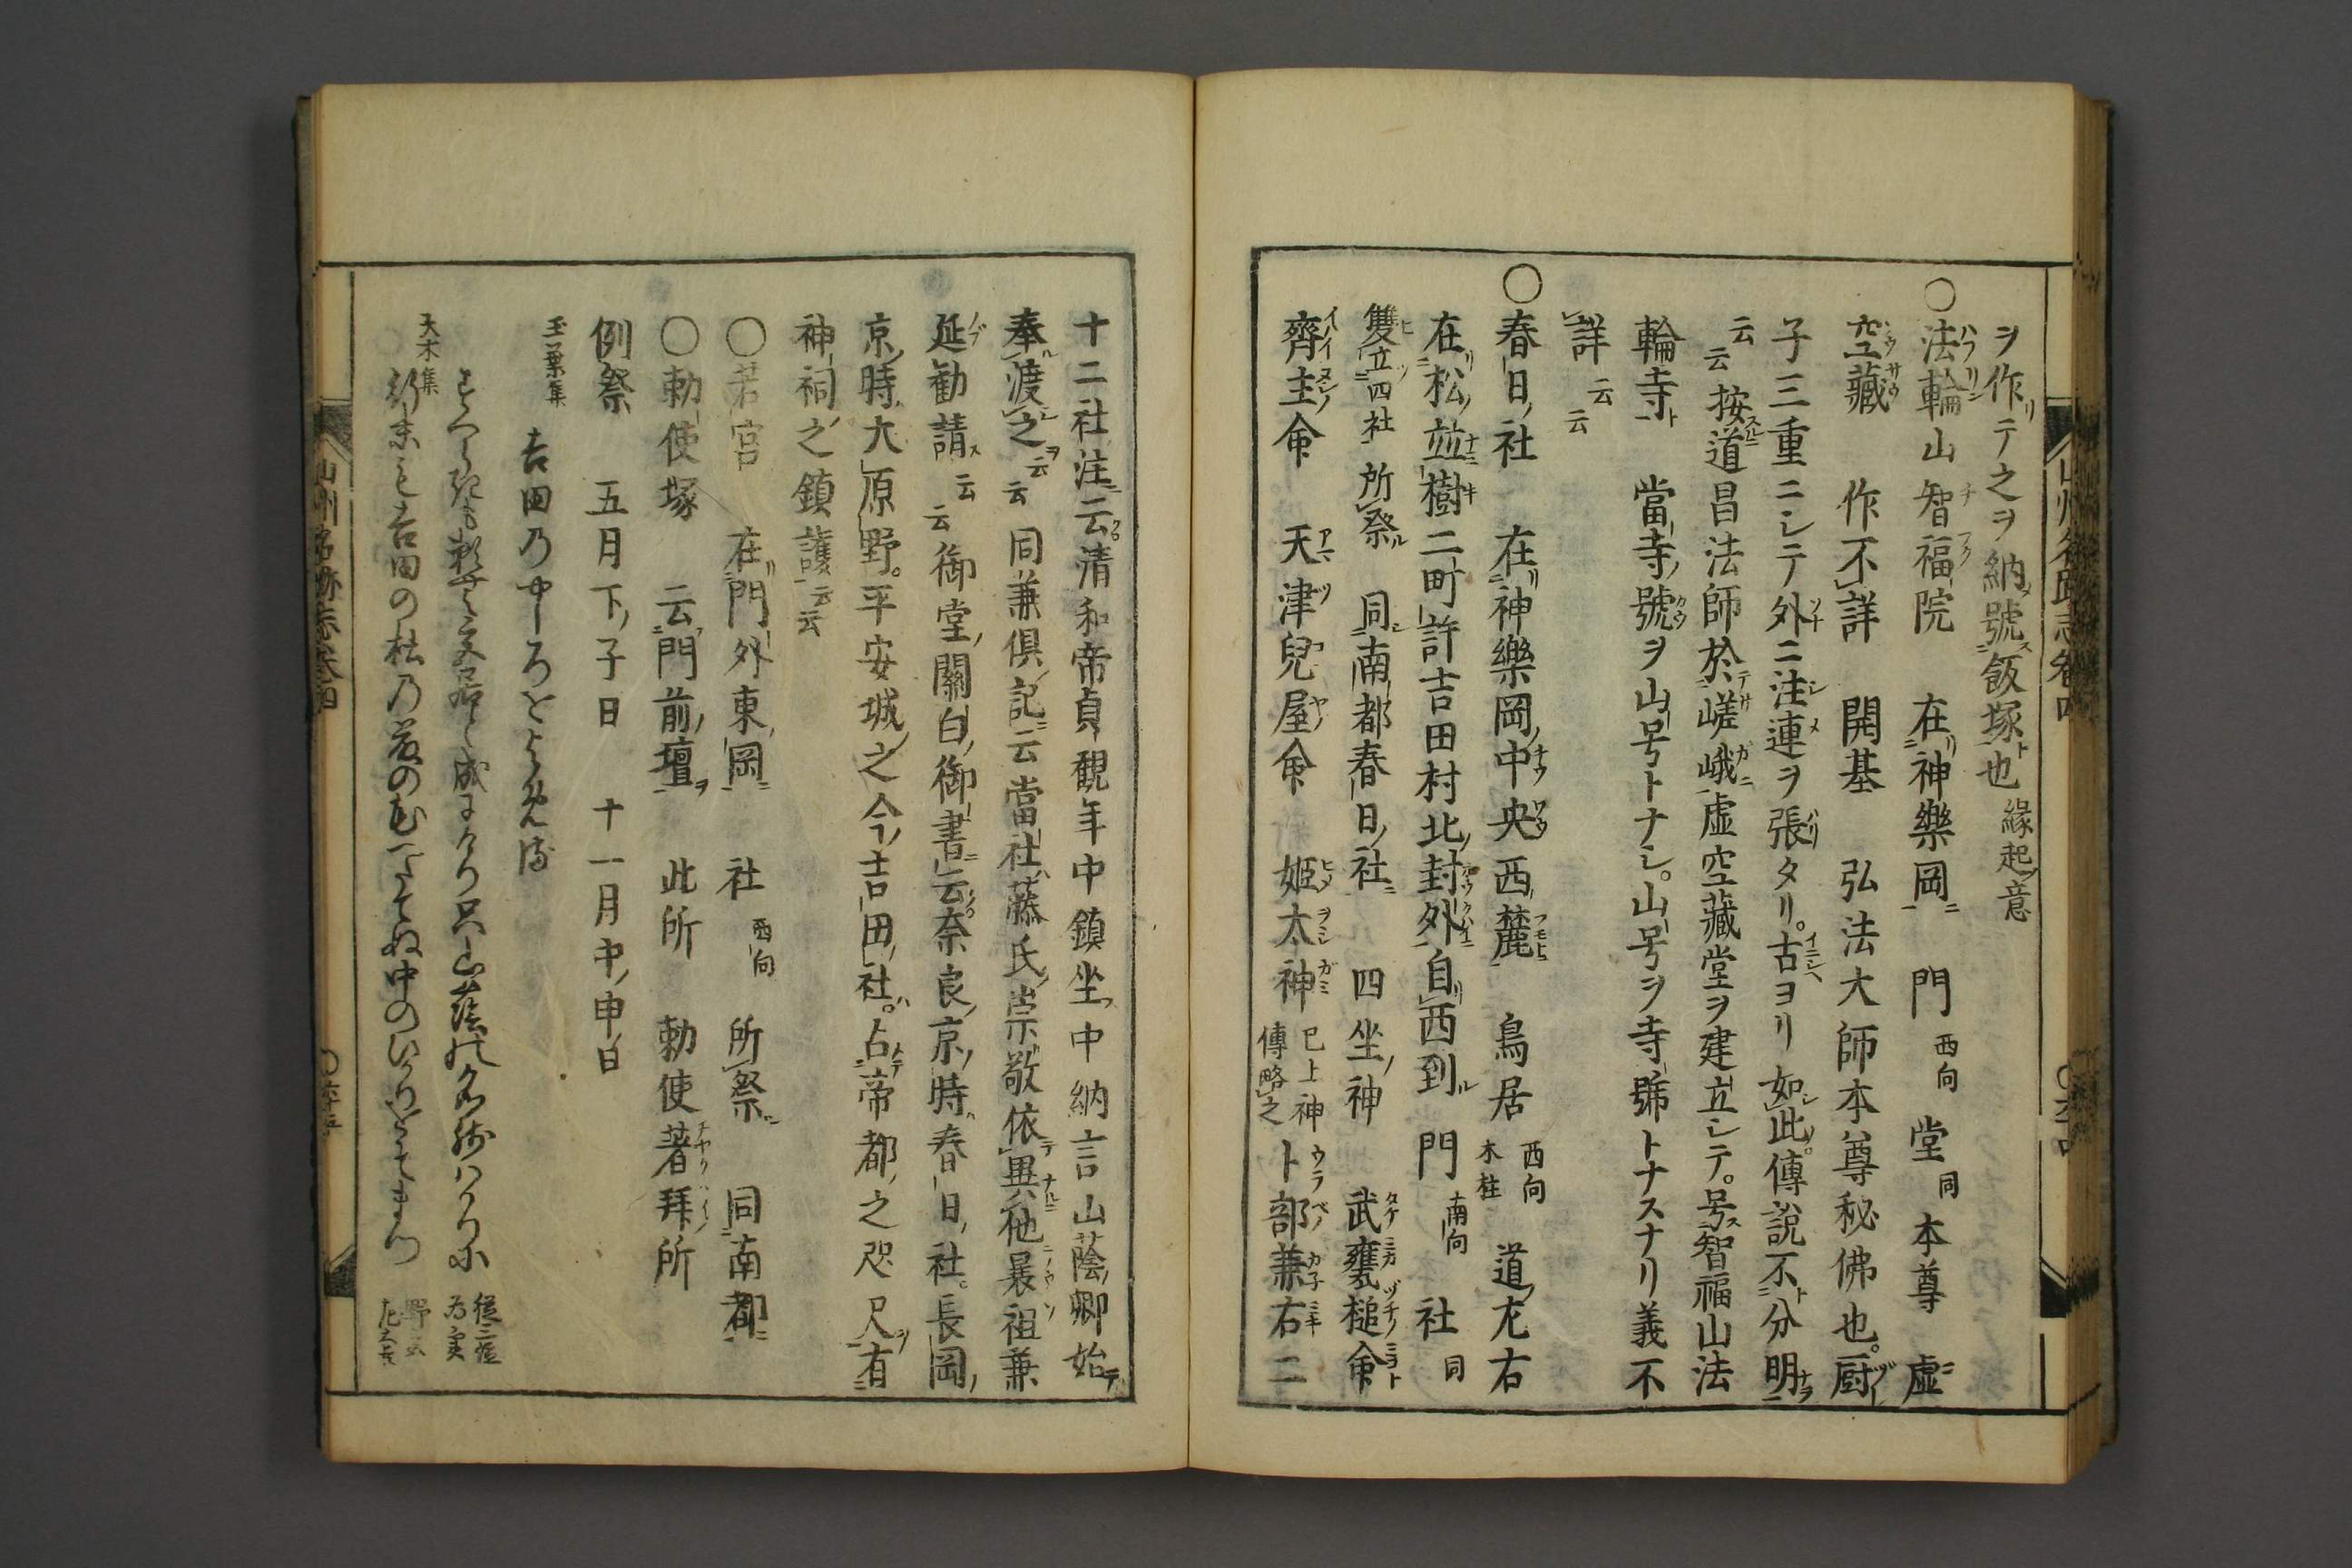 ヲ作テ之ヲ納號飯塚也 縁起ノ意
○法輪山智福院 在神樂岡 門 西向 堂 同 本尊 虚
空藏 作不詳 開基 弘法大師本尊秘佛也。厨
子三重ニシテ外ニ注連ヲ張タリ。古ヨリ如此傳説不分明
云云 按道昌法師於嵯峨虚空藏堂ヲ建立シテ。号智福山法
輪寺 當寺號ヲ山号トナシ。山号ヲ寺號トナスナリ義不
詳 云云
○春日社 在神樂岡中央西麓 鳥居 西向 木柱 道左右
在松並樹二町許吉田村北封外自西到 門 南向 社 同
雙立四社 所祭 同南都春日社 四坐神 武甕槌命
齊主命 天津兒屋命 姫太神 已上神傳略之 卜部兼右二
十二社注云清和帝貞観年中鎮坐中納言山蔭卿始
奉渡之 云云 同兼倶記云當社藤氏崇敬依異他曩祖兼
延勧請 云云 御堂關白御書云奈良京時春日社。長岡
京時大原野。平安城之今吉田社。占帝都之咫尺有
神祠之鎮護 云云
○若宮 在門外東岡 社 西向 所祭 同南都
○勅使塚 云門前壇 此所 勅使著拜所
例祭 五月下子日 十一月中申日
玉葉集 吉田乃やしろをよめる
夫木集
吉田の社乃
山州名跡志巻四